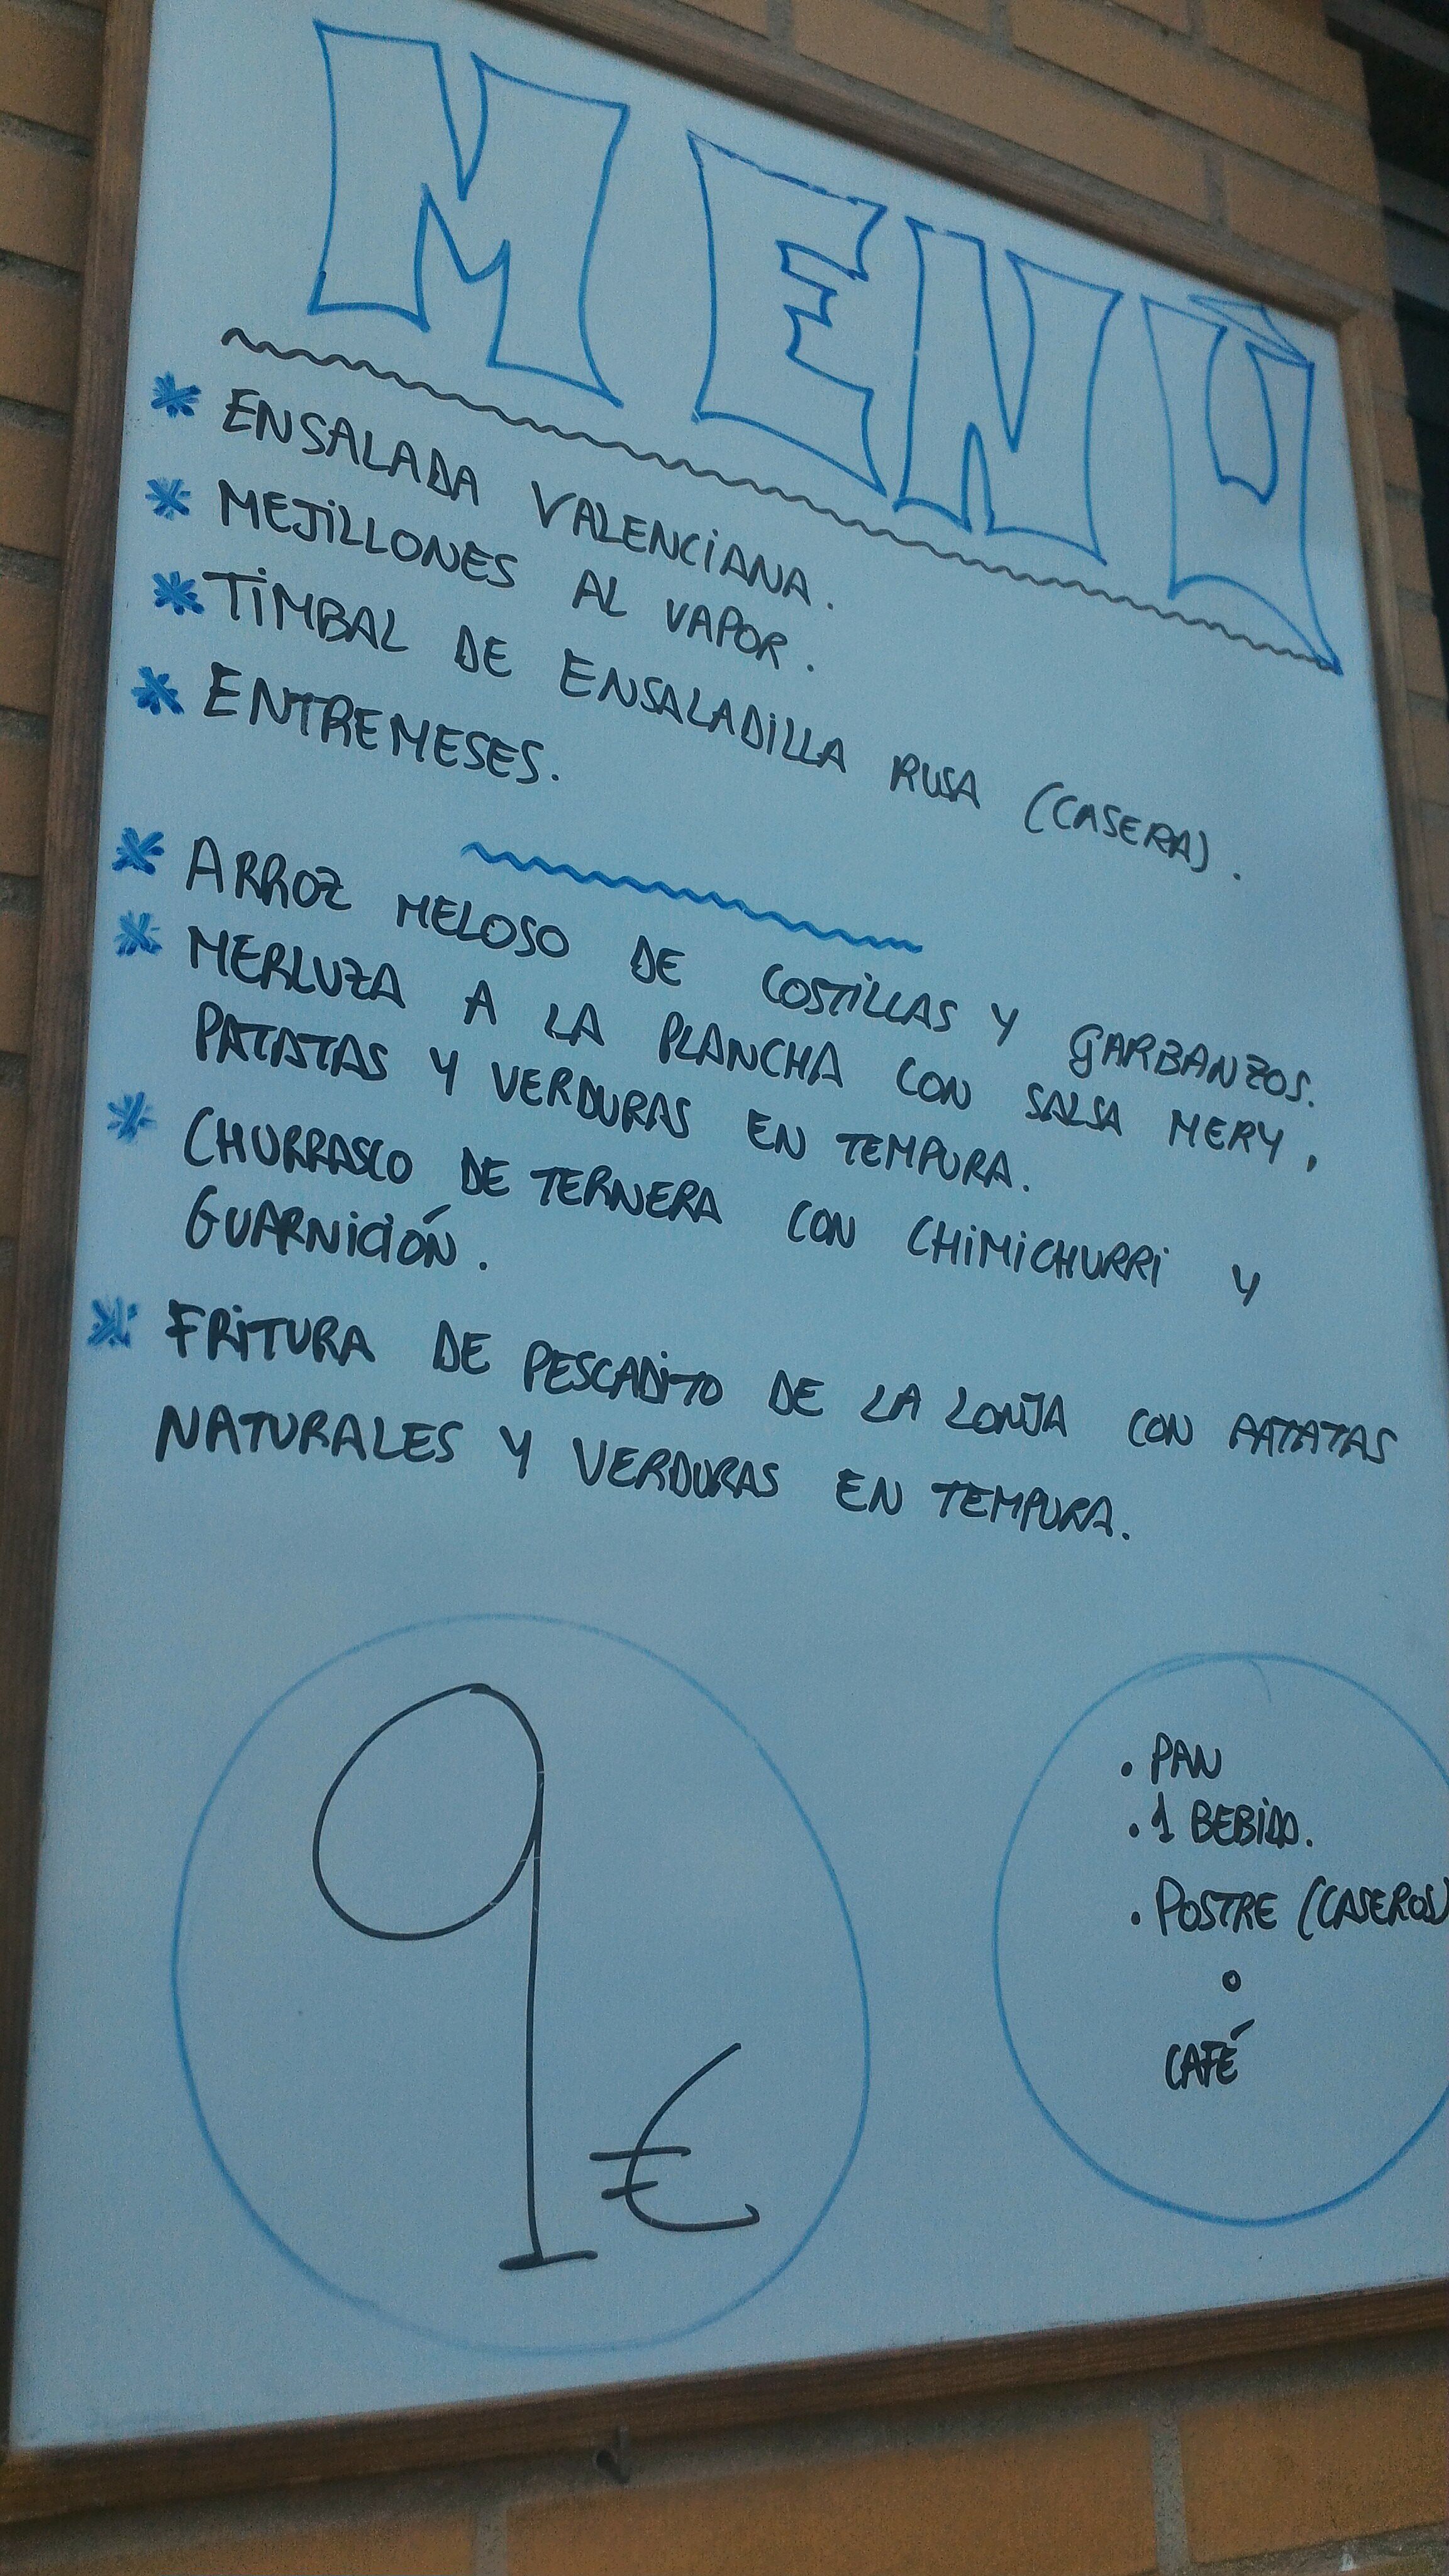 MENÚ
* ENSALADA VALENCIANA.
* MEJILLONES AL VAPOR.
* TIMBAL DE ENSALADILLA RUSA (CASERA).
* ENTREMESES.
* ARROZ MELOSO DE COSTILLAS Y GARBANZOS.
* MERLUZA A LA PLANCHA CON SALSA MERY,
PATATAS Y VERDURAS EN TEMPURA.
* CHURRASCO DE TERNERA CON CHIMICHURRI Y
GUARNICIÓN.
* FRITURA DE PESCADITO DE LA LONJA CON PATATAS
NATURALES Y VERDURAS EN TEMPURA.
9 €
• PAN
• 1 BEBIDA.
• POSTRE (CASEROS)
o
CAFÉ